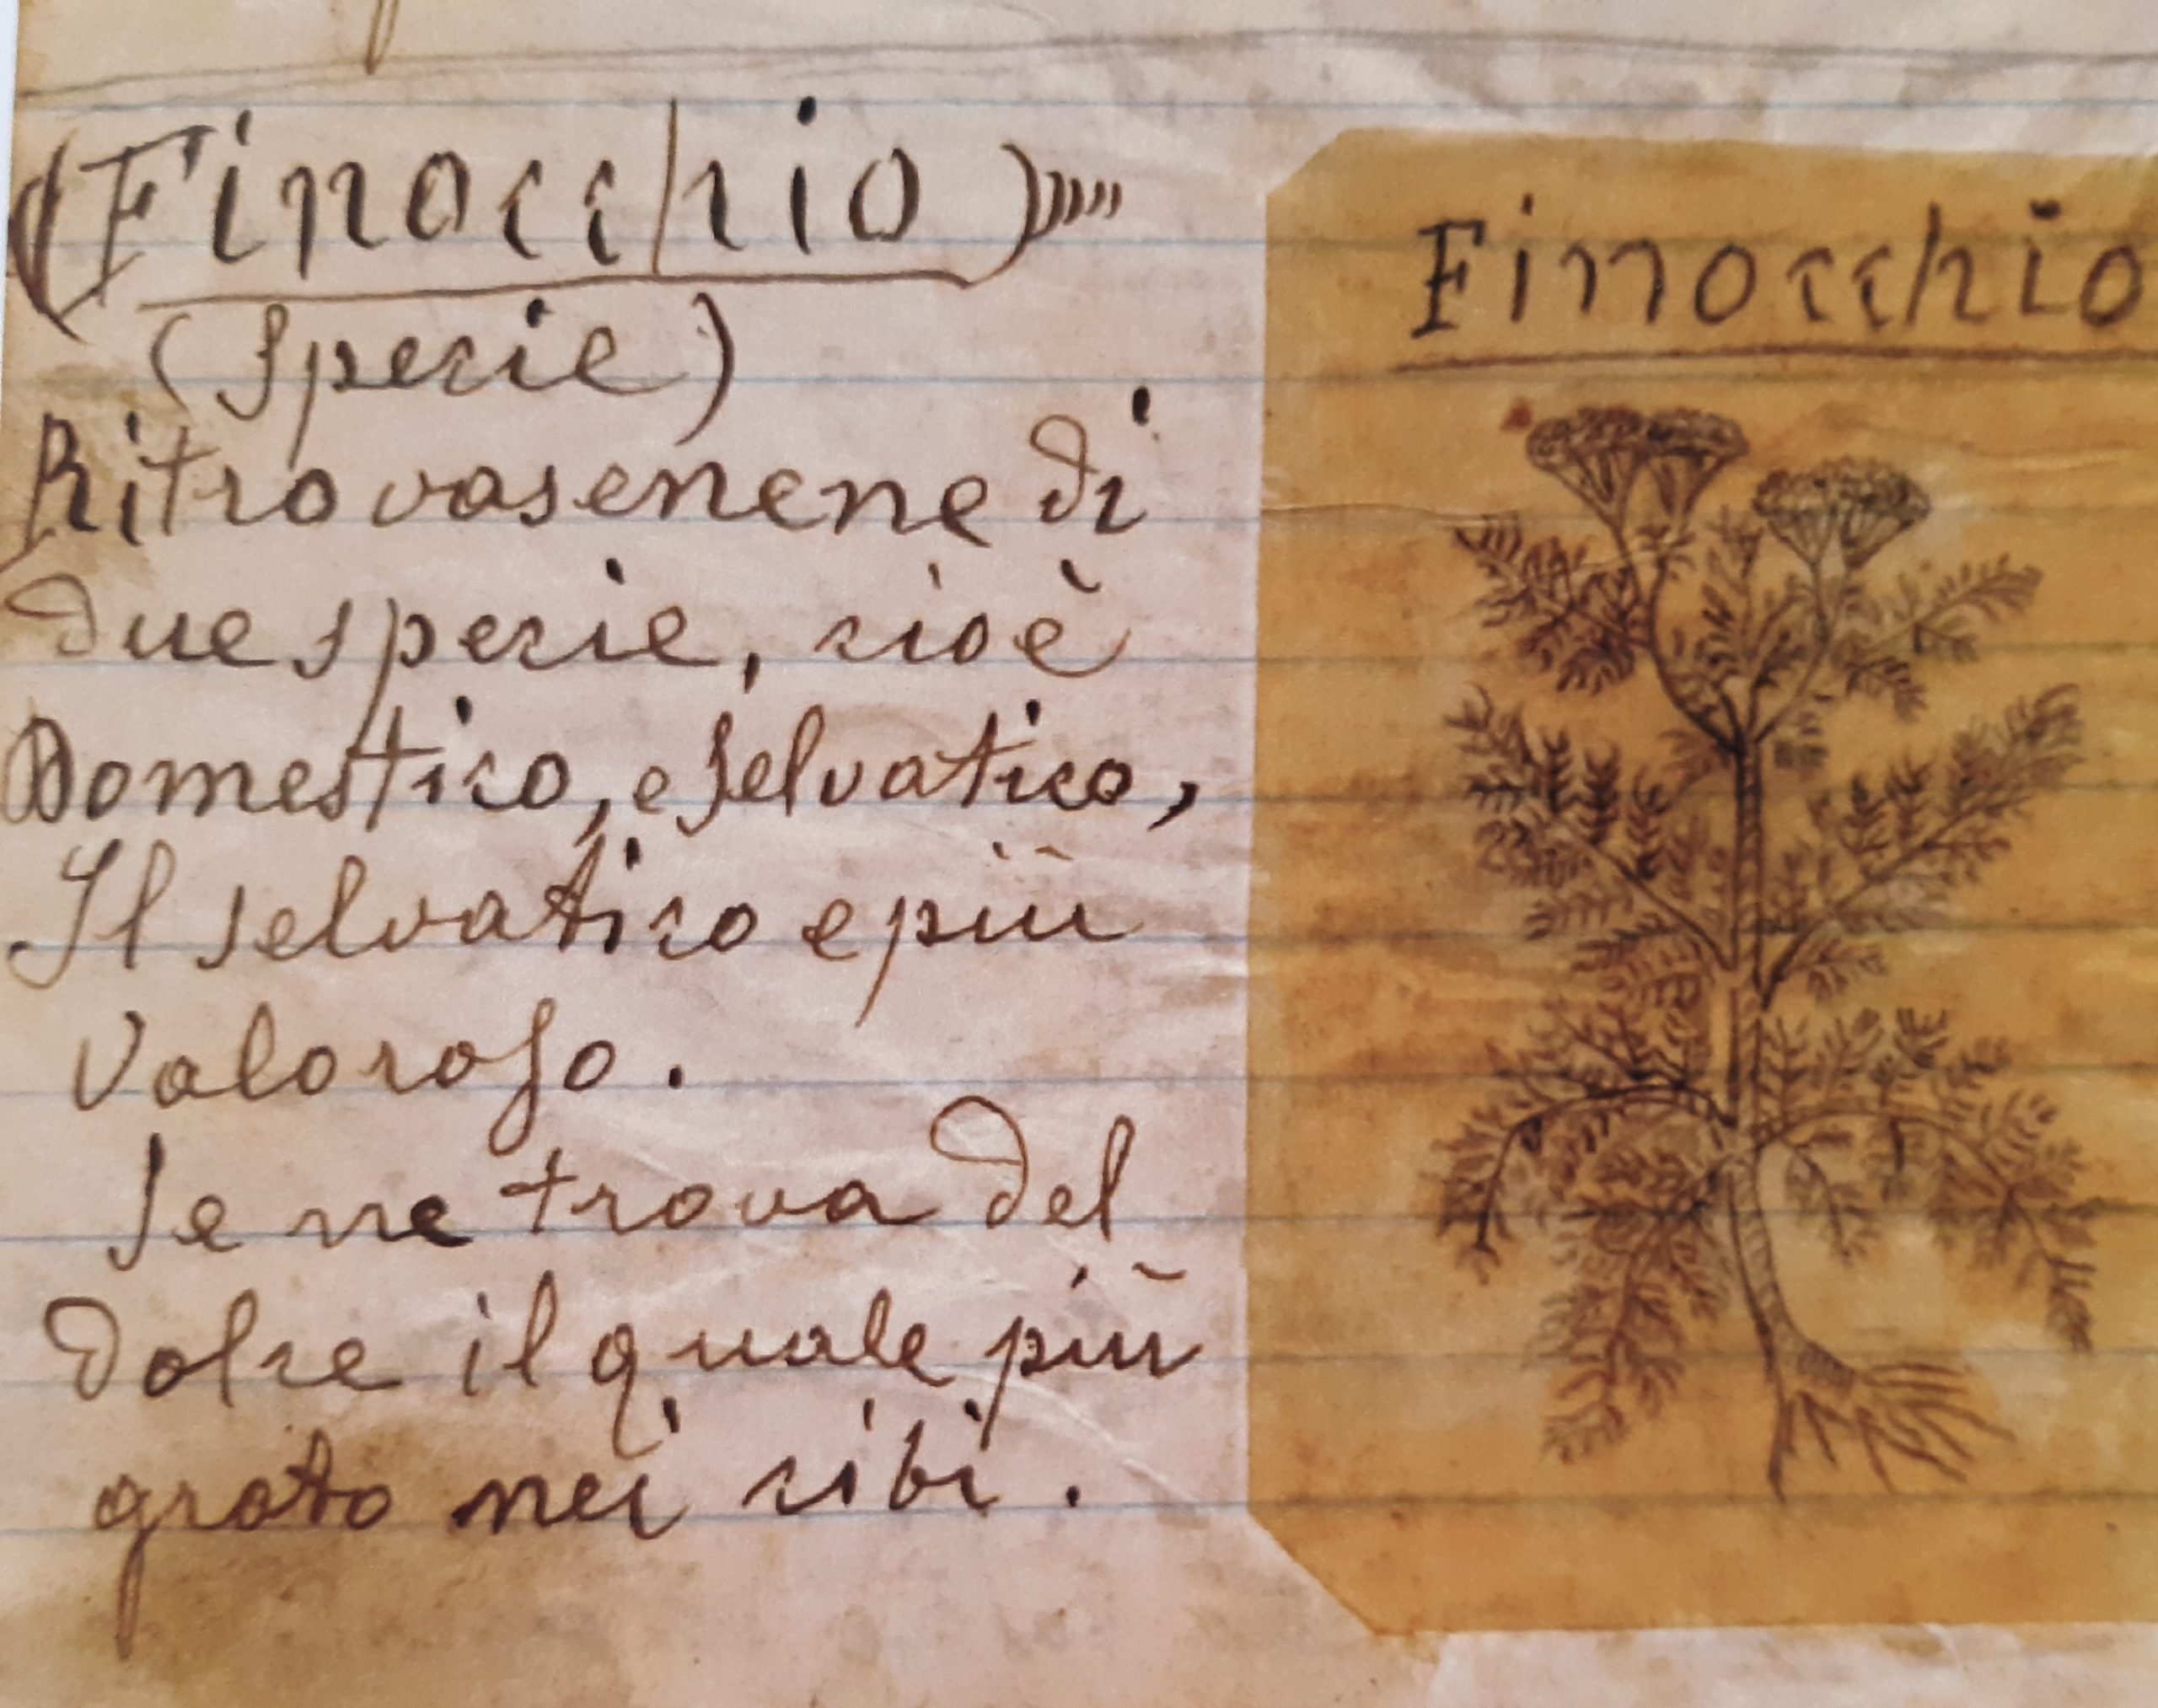 (Finocchio)
(Specie)
Ritrovasenene di
due specie, cioè
Domestico, e selvatico,
Il selvatico e più
valoroso.
Se ne trova del
dolce il quale più
grato nei cibi.
Finocchio